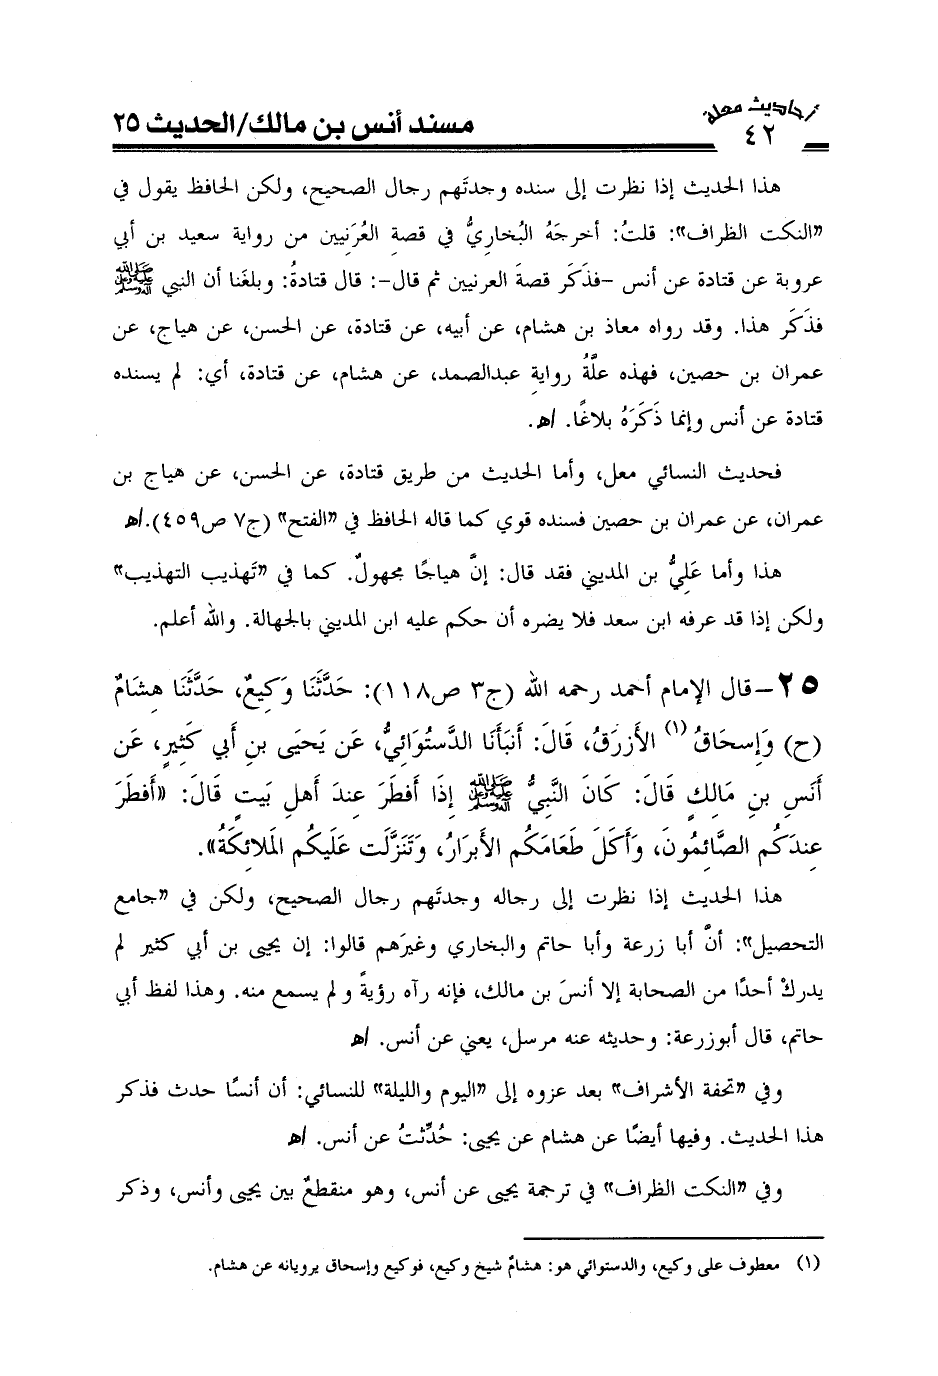 أحاديث معلة
٤٢
مسند أنس بن مالك/الحديث ٢٥
هذا الحديث إذا نظرت إلى سنده وجدتَهم رجال الصحيح، ولكن الحافظ يقول في
«النكت الظراف»: قلتُ: أخرجَهُ البُخاريُّ في قصةِ العُرَنِيين من رواية سعيد بن أبي
عروبة عن قتادة عن أنس -فذَكَر قصةَ العرنيين ثم قال-: قال قتادةُ: وبلغَنا أن النبي ﷺ
فذَكَرَ هذا. وقد رواه معاذ بن هشام، عن أبيه، عن قتادة، عن الحسن، عن هياج، عن
عمران بن حصين، فهذه علَّةُ روايةِ عبدالصمد، عن هشام، عن قتادة، أي: لم يسنده
قتادة عن أنس وإنما ذَكَرَهُ بلاغًا. اﻫ.
فحديث النسائي معل، وأما الحديث من طريق قتادة، عن الحسن، عن هياج بن
عمران، عن عمران بن حصين فسنده قوي كما قاله الحافظ في «الفتح» (ج٧ ص٤٥٩).اﻫ
هذا وأما عَلِيُّ بن المديني فقد قال: إنَّ هياجًا مجهولٌ. كما في «تَهذيب التهذيب»
ولكن إذا قد عرفه ابن سعد فلا يضره أن حكم عليه ابن المديني بالجهالة. والله أعلم.
٢٥-قال الإمام أحمد رحمه الله (ج٣ ص١١٨): حَدَّثَنَا وَكِيعٌ، حَدَّثَنَا هِشَامٌ
(ح) وَإِسحَاقُ (١) الأَزرَقُ، قَالَ: أَنبَأَنَا الدَّستُوَائِيُّ، عَن يَحيَى بنِ أَبي كَثِيرٍ، عَن
أَنَسِ بنِ مَالِكٍ قَالَ: كَانَ النَّبِيُّ ﷺ إِذَا أَفطَرَ عِندَ أَهلِ بَيتٍ قَالَ: «أَفطَرَ
عِندَكُم الصَّائِمُونَ، وَأَكَلَ طَعَامَكُم الأَبرَارُ، وَتَنَزَّلَت عَلَيكُم المَلائِكَةُ».
هذا الحديث إذا نظرت إلى رجاله وجدتَهم رجال الصحيح، ولكن في «جامع
التحصيل»: أنَّ أبا زرعة وأبا حاتم والبخاري وغيرَهم قالوا: إن يحيى بن أبي كثير لم
يدركْ أحدًا من الصحابة إلا أنسَ بن مالك، فإنه رآه رؤيةً ولم يسمع منه. وهذا لفظ أبي
حاتم، قال أبوزرعة: وحديثه عنه مرسل، يعني عن أنس. اﻫ
وفي «تحفة الأشراف» بعد عزوه إلى «اليوم والليلة» للنسائي: أن أنسًا حدث فذكر
هذا الحديث. وفيها أيضًا عن هشام عن يحيى: حُدِّثتُ عن أنس. اﻫ
وفي «النكت الظراف» في ترجمة يحيى عن أنس، وهو منقطعٌ بين يحيى وأنس، وذكر
(١) معطوف على وكيع، والدستوائي هو: هشامٌ شيخ وكيع، فوكيع وإسحاق يرويانه عن هشام.